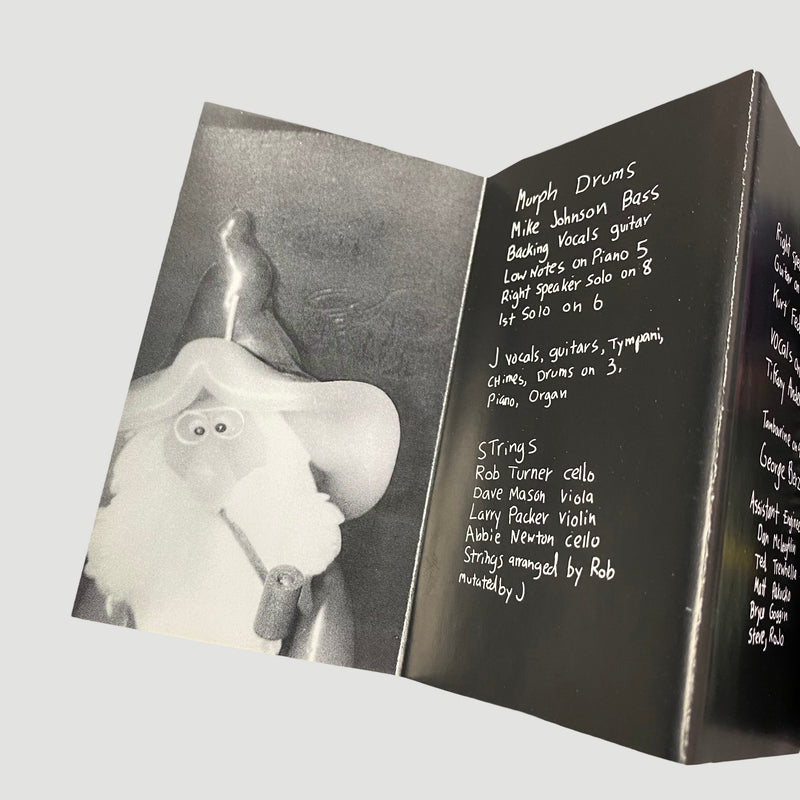 Murph Drums
Mike Johnson Bass
Backing Vocals guitar
Low Notes on Piano 5
Right speaker solo on 8
1st Solo on 6
J vocals, guitars, Tympani,
CHimes, Drums on 3,
Piano, Organ
STringS
Rob Turner cello
Dave Mason viola
Larry Packer violin
Abbie Newton cello
Strings arranged by Rob
Mutated by J
Right
Guitar on
Kurt
Vocals
Tiffany
Tambourine on
George
Assistant
Don McLaughlin
Ted
Matt
Bryce Goggin
Steve, RoJo